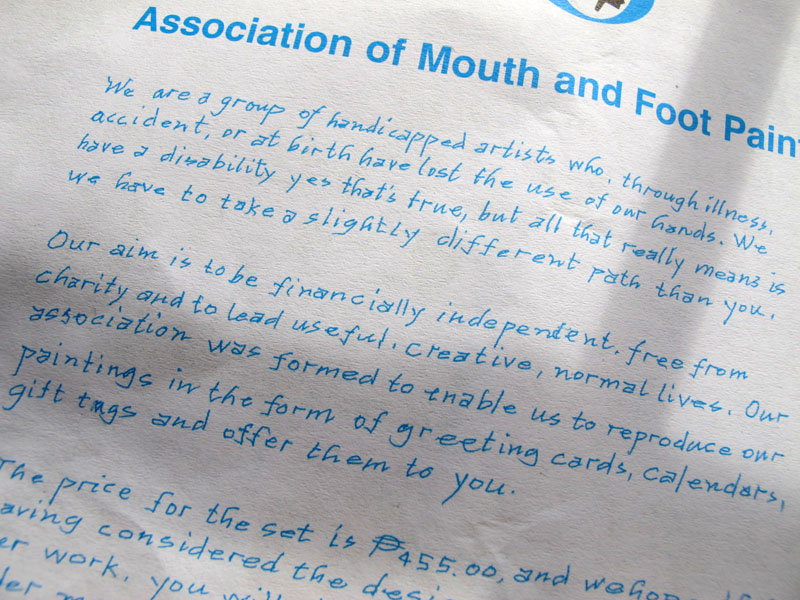 Association of Mouth and Foot Paint
We are a group of handicapped artists who, through illness,
accident, or at birth have lost the use of our hands. We
have a disability yes that's true, but all that really means is
we have to take a slightly different path than you.
Our aim is to be financially independent, free from
charity and to lead useful, creative, normal lives. Our
association was formed to enable us to reproduce our
paintings in the form of greeting cards, calendars,
gift tags and offer them to you.
The price for the set is ₱455.00, and we hope
aving considered the desi
er work, you will
der